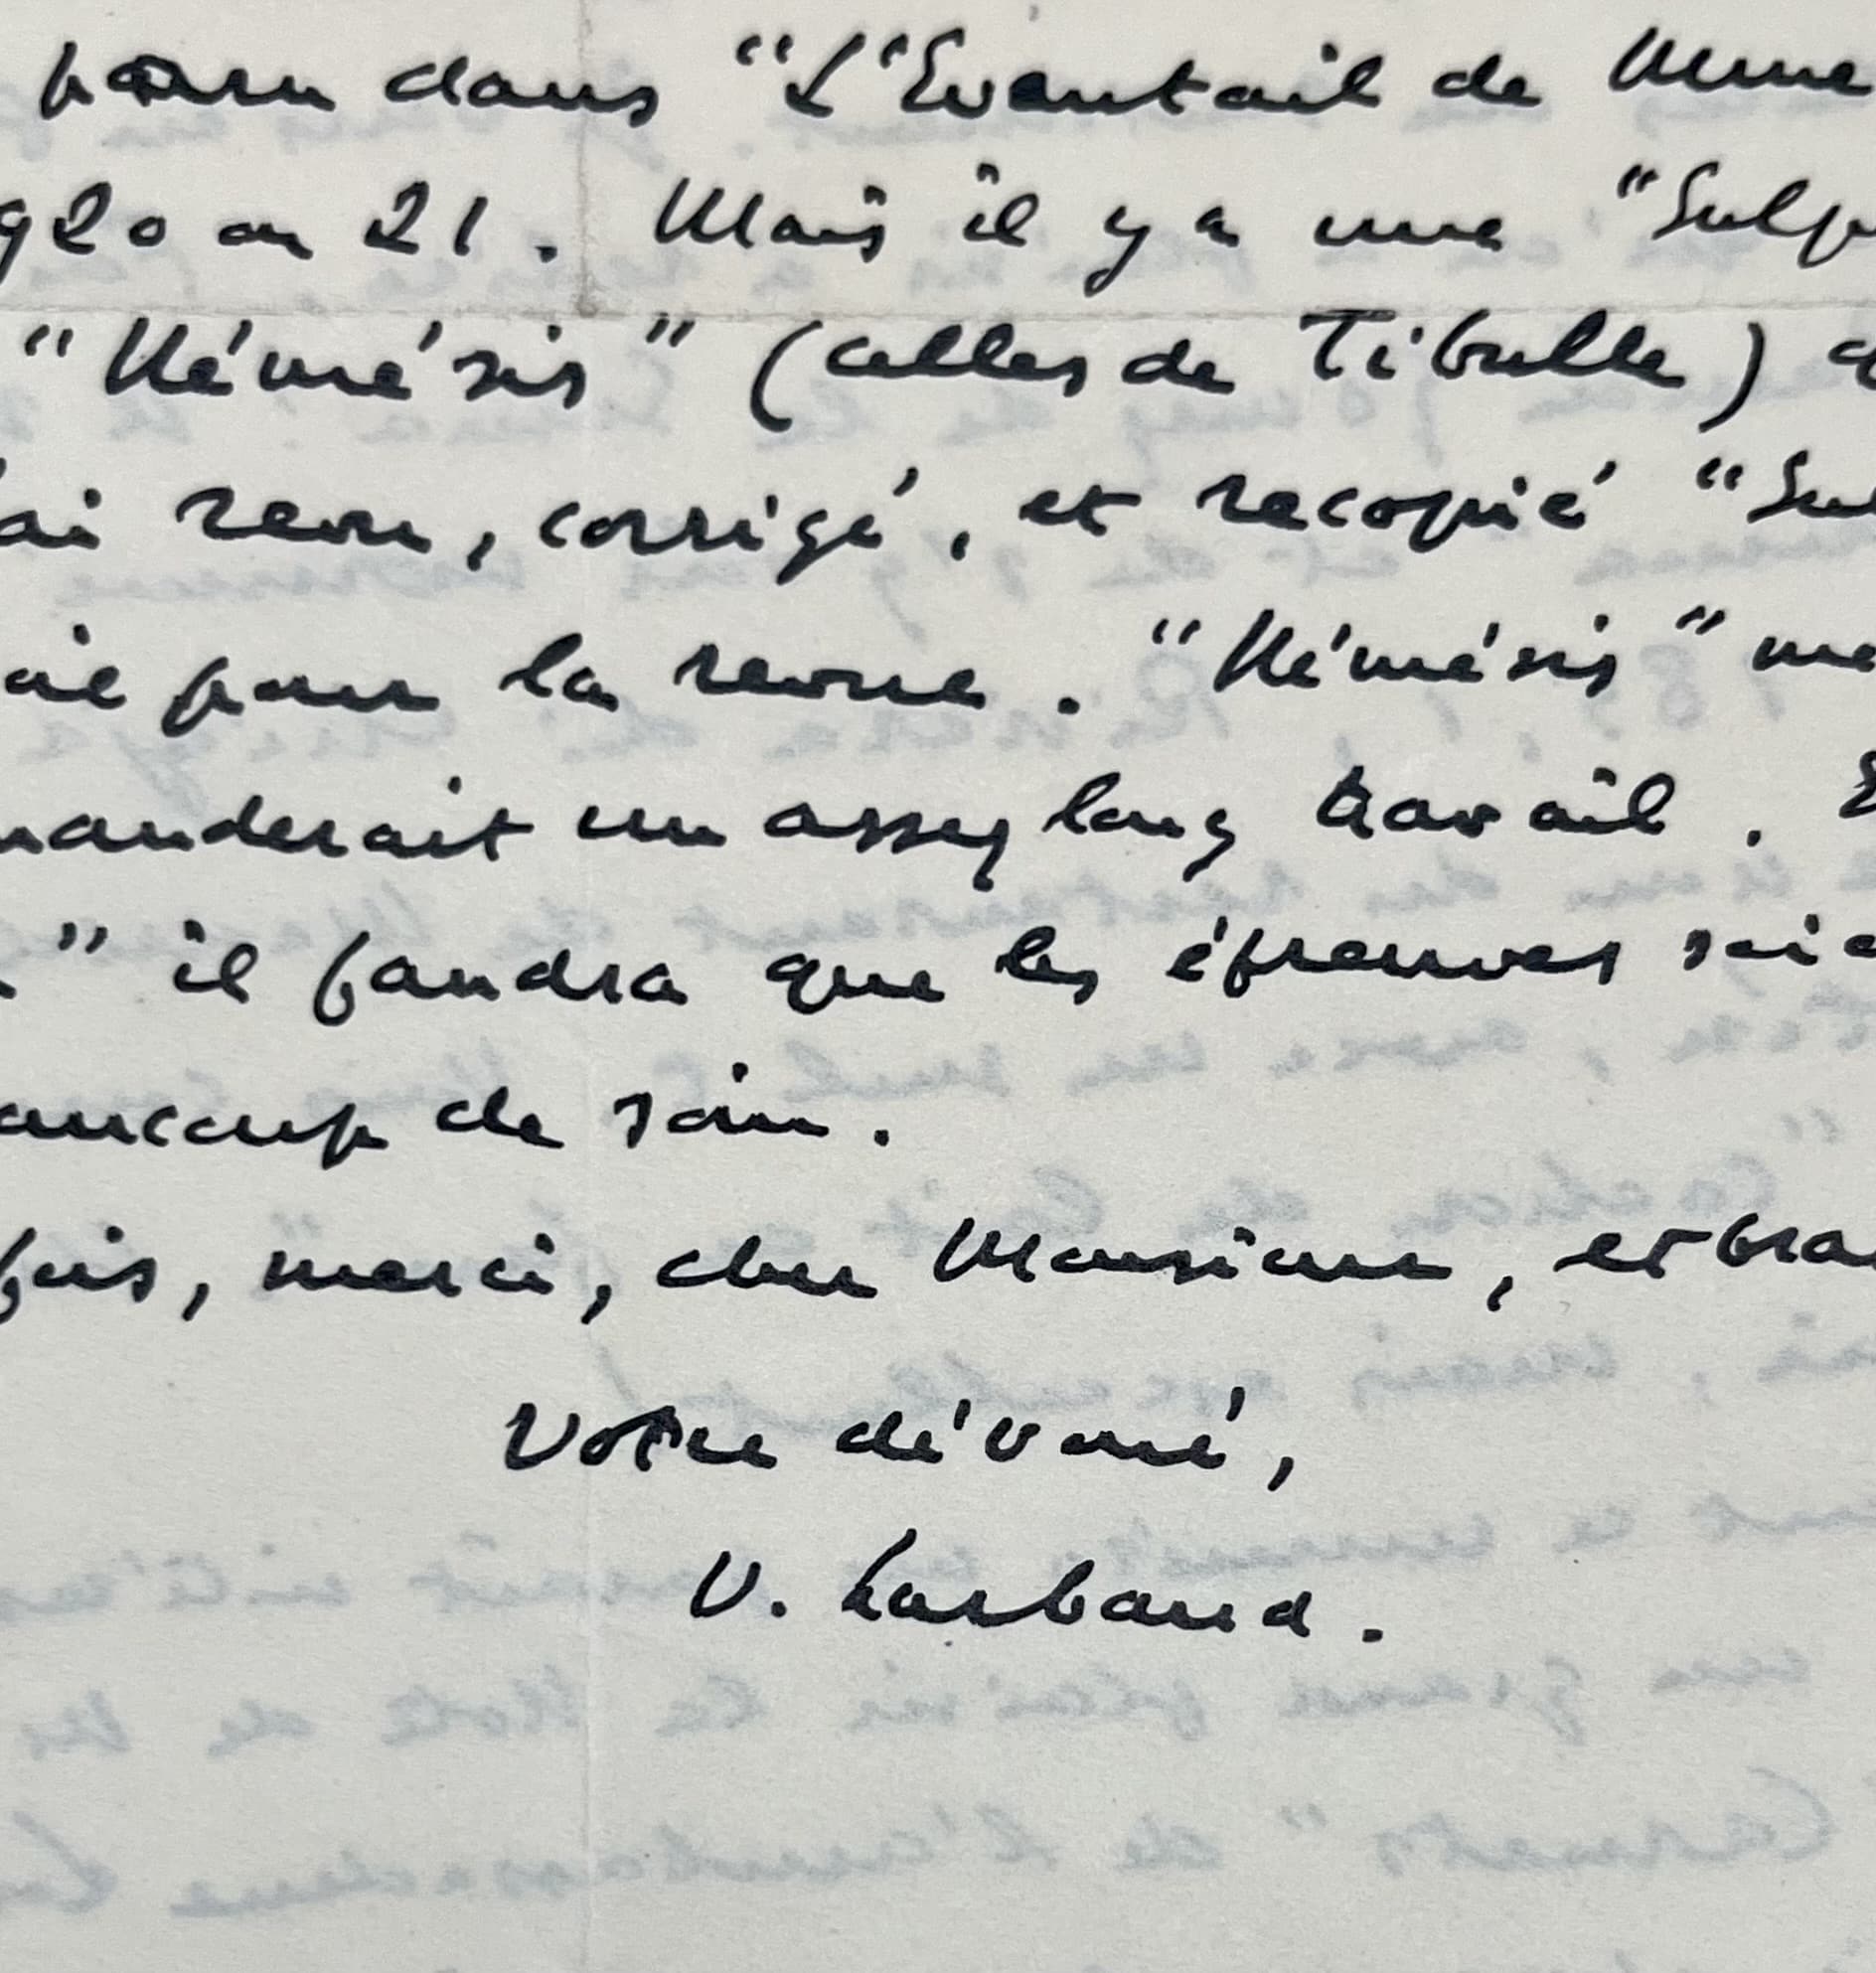 paru dans "L'Eventail de Mme
920 ou 21. Mais il y a une "Sulp
"Némésis" (celles de Tibulle) q
ai revu, corrigé, et recopié "Su
ail pour la revue. "Némésis" me
manderait un assez long travail. E
" il faudra que les épreuves soie
aucoup de soin.
fois, merci, cher Monsieur, et bra
Votre dévoué,
V. Larbaud.